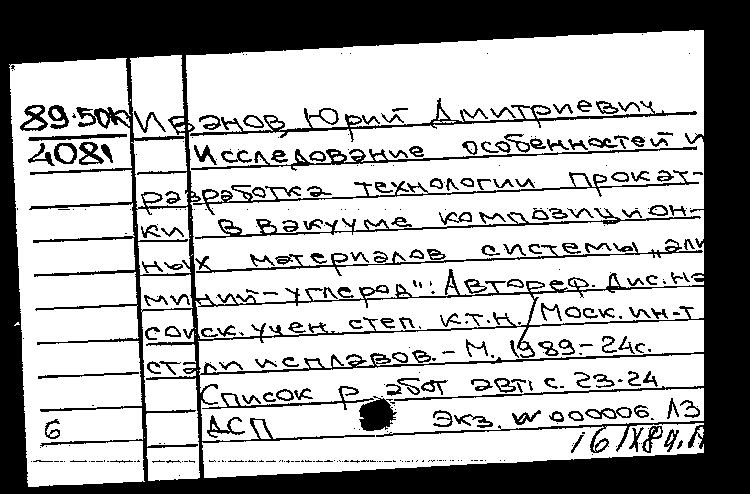 89-50к Иванов Юрий Дмитриевич.
4081 Исследование особенностей и
разработка технологии прокат-
ки в вакууме композицион-
ных материалов системы „алю
миний-углерод": Автореф. Дис. на
соиск. учен. степ. к.т.н./Моск. ин-т
стали и сплавов. - М., 1989. - 24с.
Список работ авт: с. 23-24
6 ДСП Экз. N 000006.